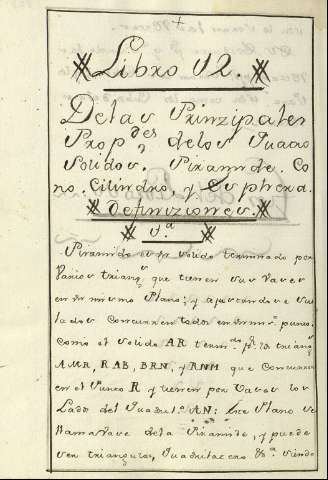 Libro 12.
De las Prinzipales
Prop.des de los Quatro
Solidos. Piramide. Co
no. Cilindro, y Esphera.
Definiziones
1.a
Piramide es un solido terminado por
varios triang.s que tienen sus vases
en un mismo Plano; y ajustandose sus
lados concurren todos en un mis.o punto.
Como el solido AR term.do p.r los triang.s
AMR, RAB, BRN, y RNM que concurren
en el Punto R y tienen por vases los
Lados del Quadril.o AN: Este Plano se
llama vase de la Piramide, y puede
ser triangular, Quadrilatero &.a siendo